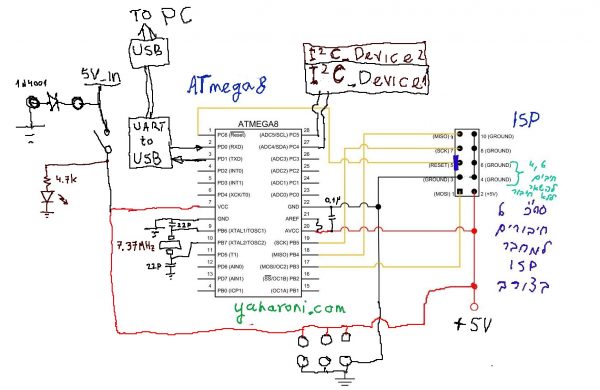 TO PC
USB
UART
to
USB
1d4001
5V_In
4.7k
ATmega8
I²C_Device2
I²C_Device1
ISP
ATMEGA8
1 PC6 (Reset)
2 PD0 (RXD)
3 PD1 (TXD)
4 PD2 (INT0)
5 PD3 (INT1)
6 PD4 (XCK/T0)
7 VCC
8 GND
9 PB6 (XTAL1/TOSC1)
10 PB7 (XTAL2/TOSC2)
11 PD5 (T1)
12 PD6 (AIN0)
13 PD7 (AIN1)
14 PB0 (ICP1)
(ADC5/SCL) PC5 28
(ADC4/SDA) PC4 27
(ADC3) PC3 26
(ADC2) PC2 25
(ADC1) PC1 24
(ADC0) PC0 23
GND 22
AREF 21
AVCC 20
(SCK) PB5 19
(MISO) PB4 18
(MOSI/OC2) PB3 17
(SS/OC1B) PB2 16
(OC1A) PB1 15
22P
7.37MHz
22P
0.1µ
(MISO) 9
(SCK) 7
(RESET) 5
(GROUND) 3
(MOSI) 1
10 (GROUND)
8 (GROUND)
6 (GROUND)
4 (GROUND)
2 (+5V)
4,6
סה"כ 6
חיבורים
למחבר
ISP
בצורב
+5V
yaharoni.com